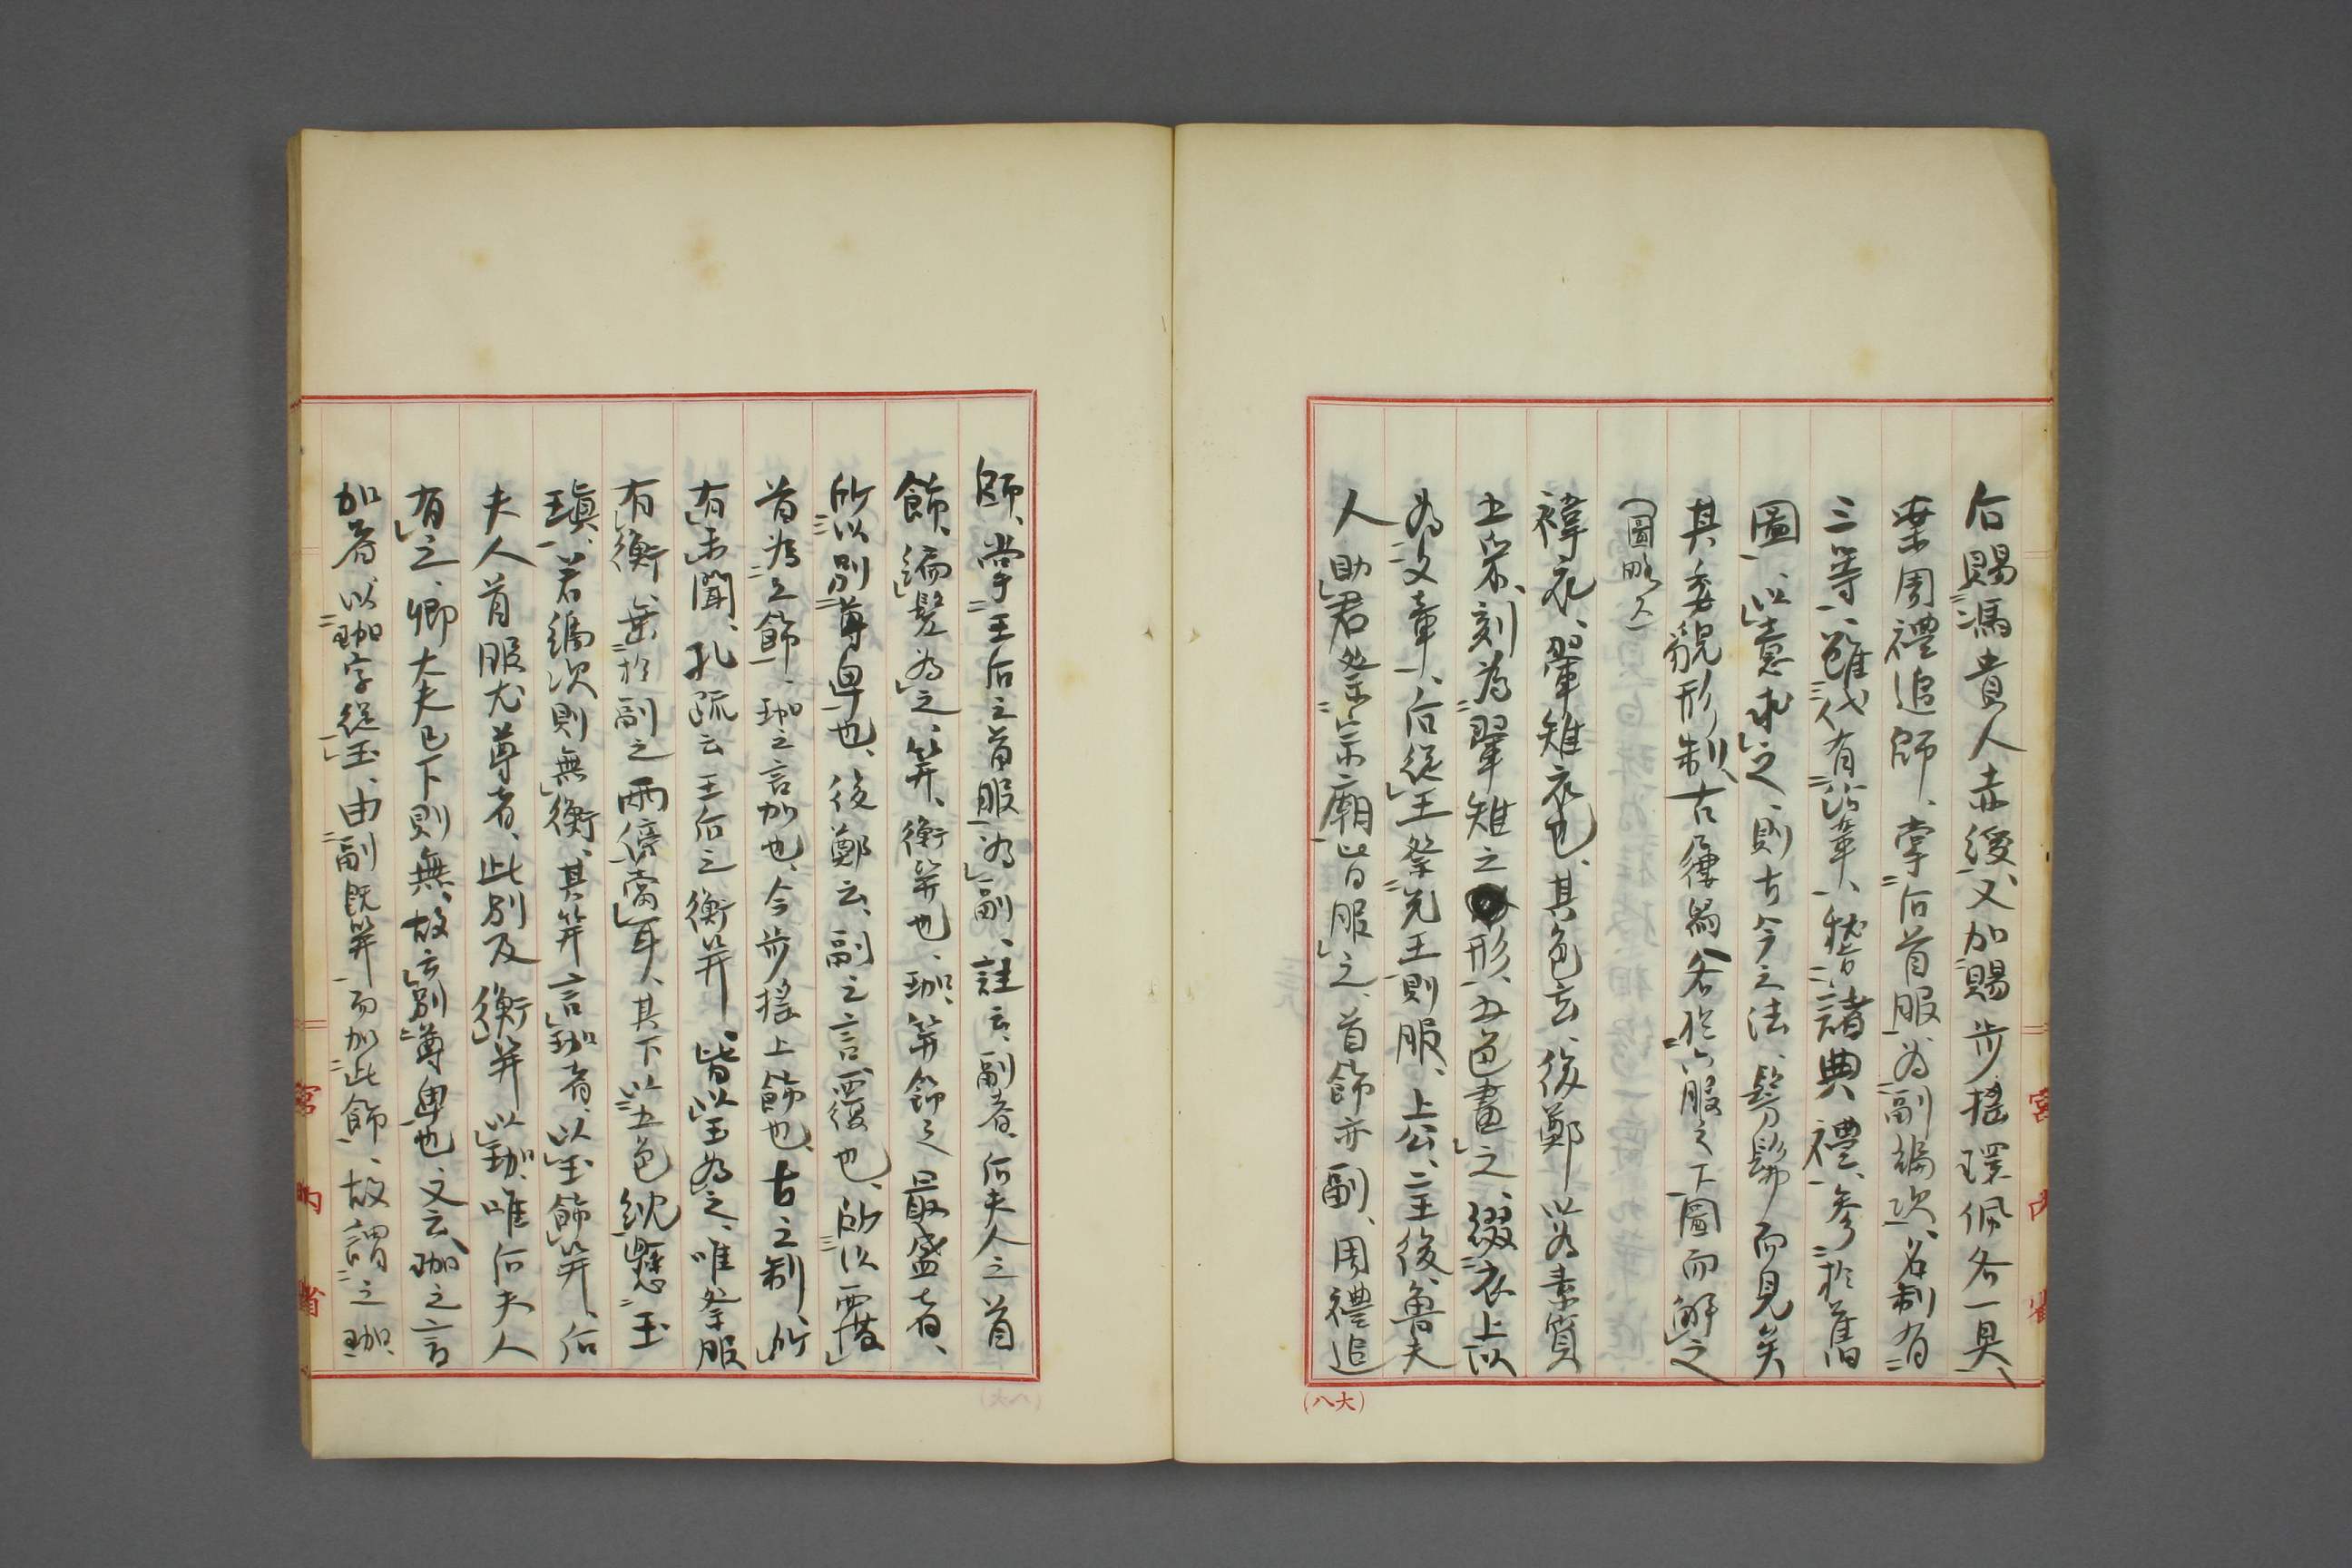 后賜馮貴人赤綬、又加賜步搖環佩各一具、
案周禮追師、掌后首服為副編次、名制有
三等、雖代有沿革、稽諸典禮、參於舊
圖、以意求之、則古今之法、髣髴而見矣
其委貌形制、古禮爲各於六服之下圖而解之
(圖略ス)
褘衣、翬雉衣也、其色玄、後鄭以為素質
五采、刻為翬雉之形、五色畫之、綴衣上以
為文章、后從王祭先王則服、上公二王後、魯夫
人助君祭宗廟皆服之、首飾亦副、周禮追
師、掌王后之首服為副、註云、副者、后夫人之首
飾、編髮為之、笄、衡笄也、珈、笄飾之最盛者、
所以別尊卑也、後鄭云、副之言覆也、所以覆
首為之飾、珈之言加也、今步搖上飾也、古之制、所
有未聞、孔疏云王后之衡笄、皆以玉為之、唯祭服
有衡、垂於副之兩傍當耳、其下以五色紞懸玉
瑱、若編次則無衡、其笄言珈者、以玉飾笄、后
夫人首服尤尊者、此別及衡笄以珈、唯后夫人
有之、卿大夫已下則無、故云別尊卑也、又云、珈之言
加者、以珈字從玉、由副既笄而加此飾、故謂之珈、
宮内省
宮内省
(大八)